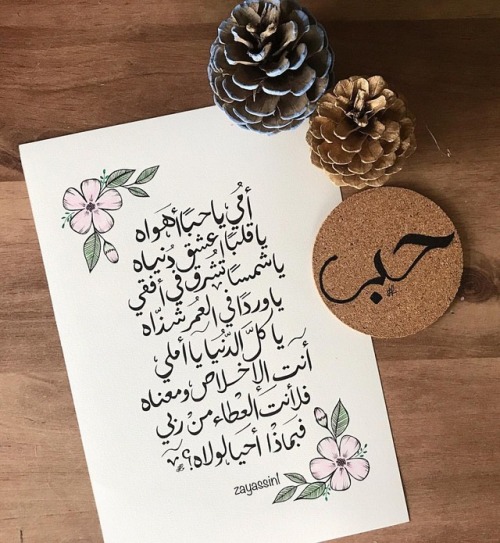 أمي يا حبًا أهواه
يا قلبًا عشق دُنياه
يا شمسًا تشرق في أفقي
يا وردًا في العُمر شذاه
يا كلّ الدُّنيا يا أملي
أنت الإخلاص ومعناه
فلأنت العطاء من ربي
فبماذا أحيا لولاه؟
zayassin1
حب